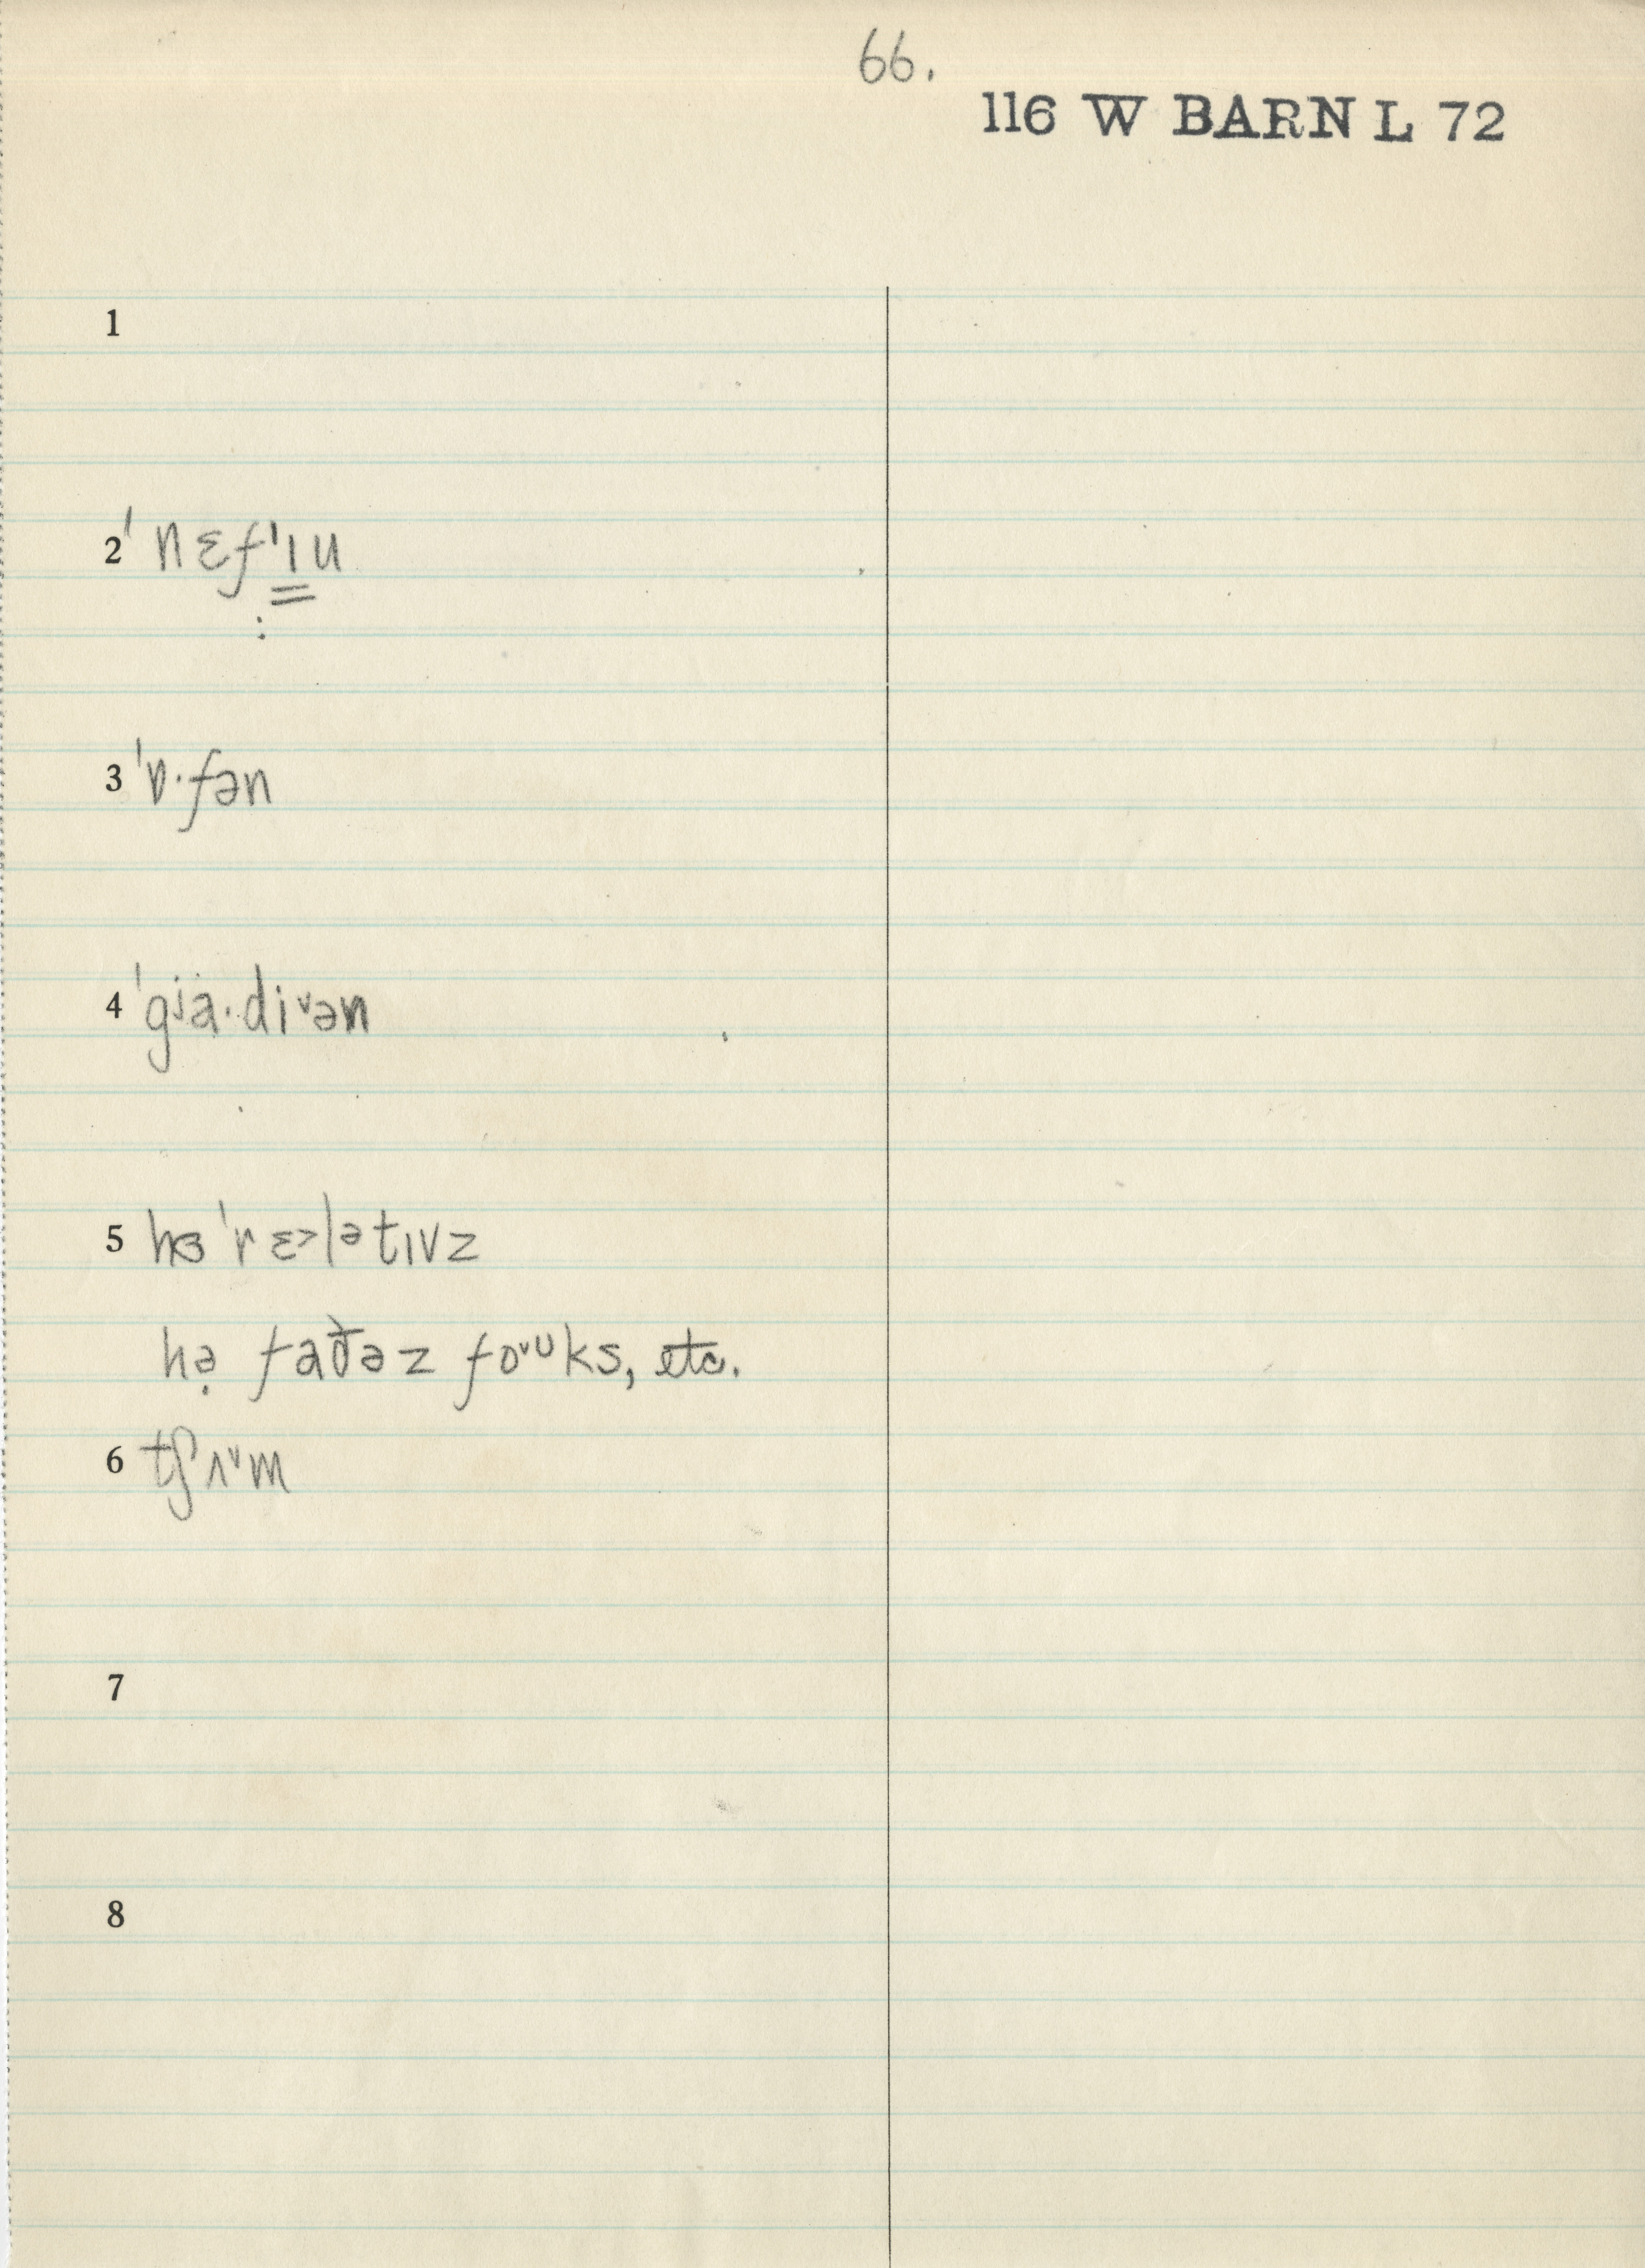 66.
116 W BARN L 72
1
2 ˈnɛfˈɪu
:
3 ˈɒ·fən
4 ˈgʲa·di˅ən
5 hɜ ˈrɛ˃lətɪvz
hə̣ faðəz fo˅ᴜks, etc.
6 tʃʌ˅m
7
8